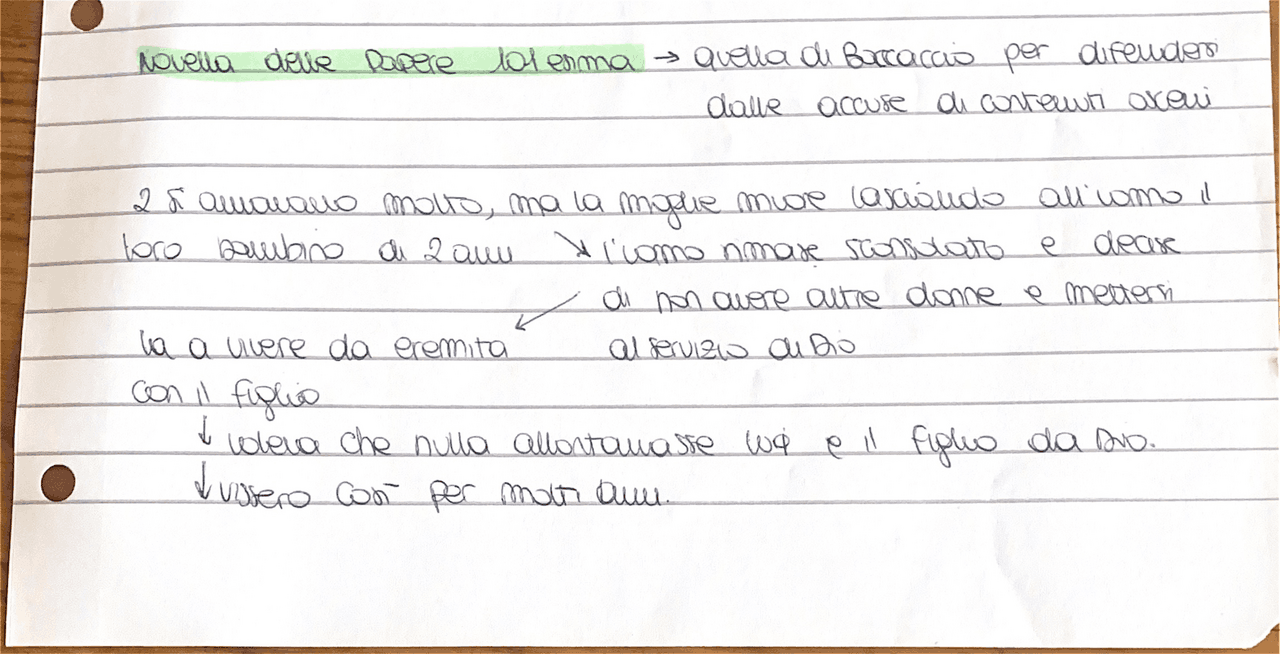 Novella delle Papere 101esima → quella di Boccaccio per difendersi
dalle accuse di contenuti osceni
2 si amavano molto, ma la moglie muore lasciando all'uomo il
loro bambino di 2 anni ↘ l'uomo rimase sconsolato e decise
di non avere altre donne e mettersi
al servizio di Dio
↙ va a vivere da eremita
con il figlio
↓ voleva che nulla allontanasse lui e il figlio da Dio.
↓ vissero così per molti anni.